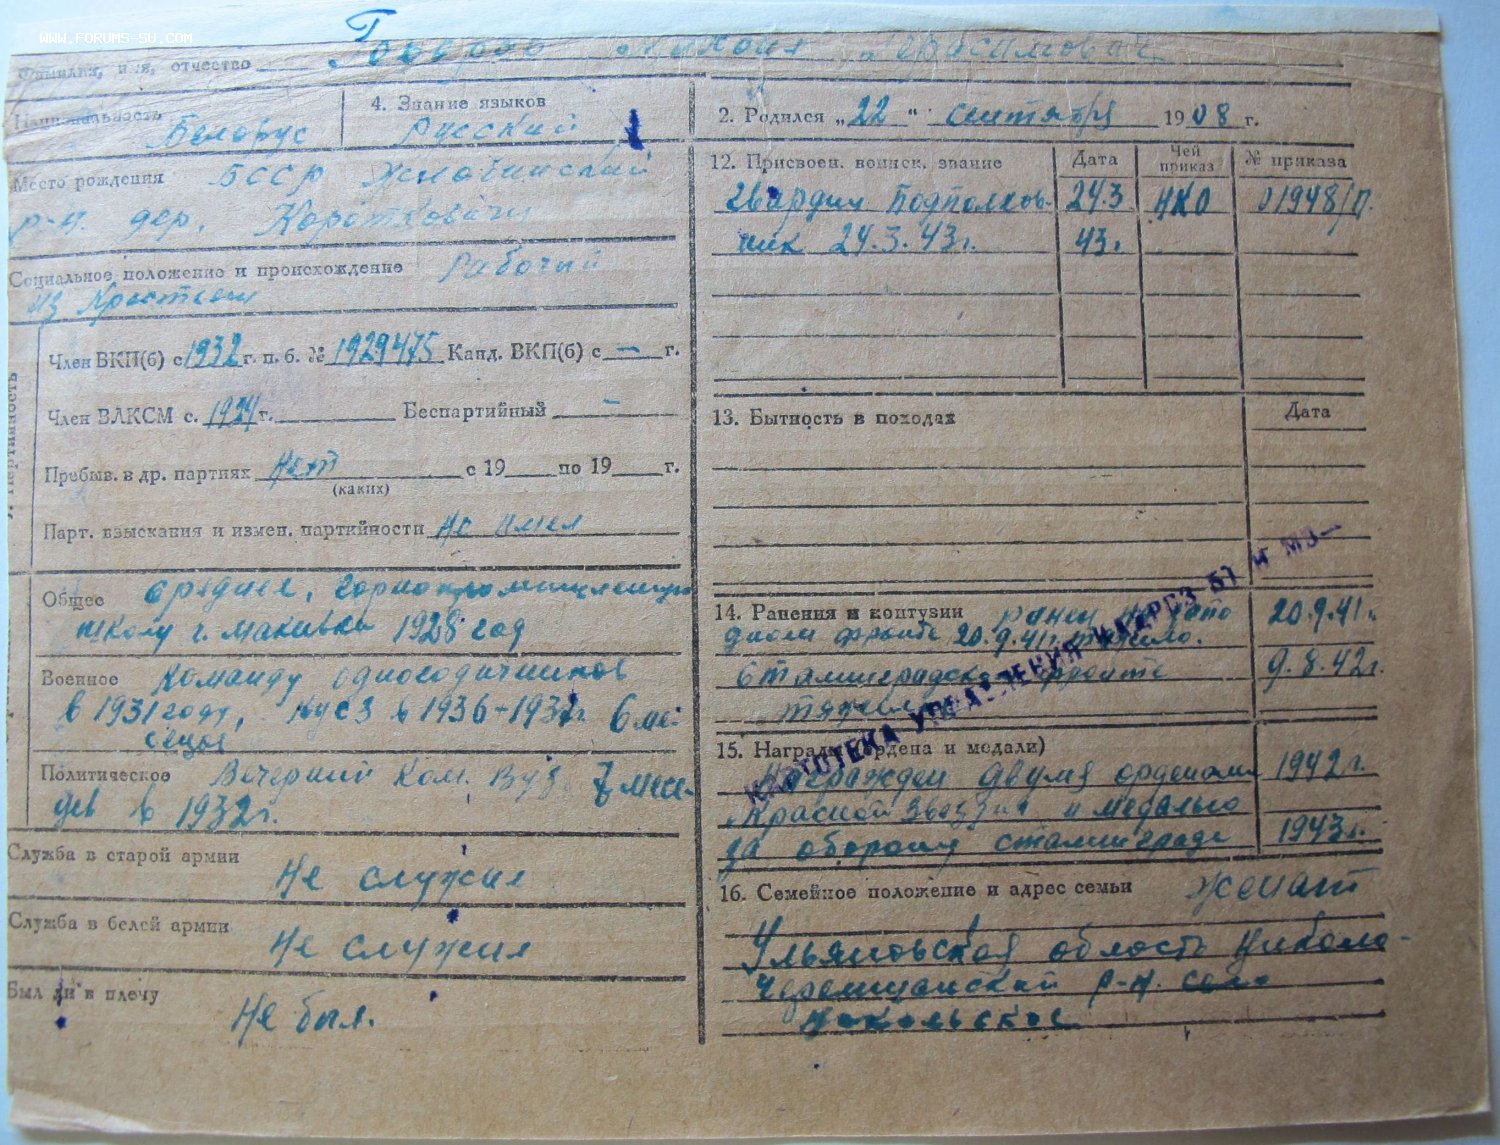 www.forums-su.com
Фамилия, имя, отчество
Национальность Белорус
4. Знание языков Русский
Место рождения БССР Жлобинский
р-н. дер. Коротковичи
Социальное положение и происхождение Рабочий
из Крестьян
Член ВКП(б) с 1932 г. п. б. № 1929475 Канд. ВКП(б) с — г.
Член ВЛКСМ с. 1924 г. Беспартийный —
Пребыв. в др. партиях Нет с 19 по 19 г.
(каких)
Парт. взыскания и измен. партийности Не имел
Общее среднее, горнопромышленную
школу г. Макивка 1928 год
Военное Команду одногодичников
в 1931 году, в 1936-1937г. 6 ме-
сецы
Политическое Вечерний Ком. Вуз 7 месе-
цев в 1932г.
Служба в старой армии Не служил
Служба в белой армии Не служил
Был ли в плену Не был.
2. Родился „22“ сентября 1908 г.
12. Присвоен. воинск. звание Дата Чей приказ № приказа
Гвардии Подполков- 24.3 НКО 01948/п.
ник 24.3.43г. 43г.
13. Бытность в походах Дата
14. Ранения и контузии ранен 20.9.41г.
фронте 20.9.41г. тяжело.
Сталинградском фронте 9.8.42г.
тяжело
15. Награды (ордена и медали)
Награжден двумя орденами 1942г.
Красной Звезды и медалью
за оборону сталинграда 1943г.
КАРТОТЕКА УПРАВЛЕНИЯ КАДРОВ БТ и МВ
16. Семейное положение и адрес семьи женат
Ульяновская область Николо-
Черемшанский р-н. село
Никольское